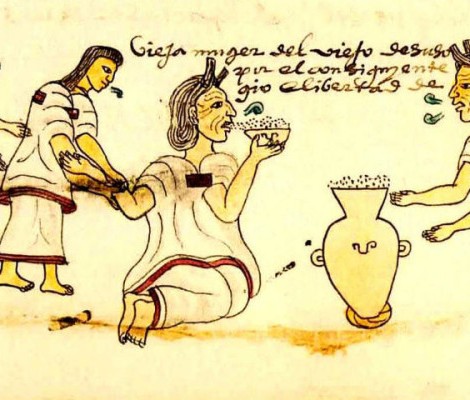 Vieja muger del viejo desuso
por el consiguiente
gio e libertad de